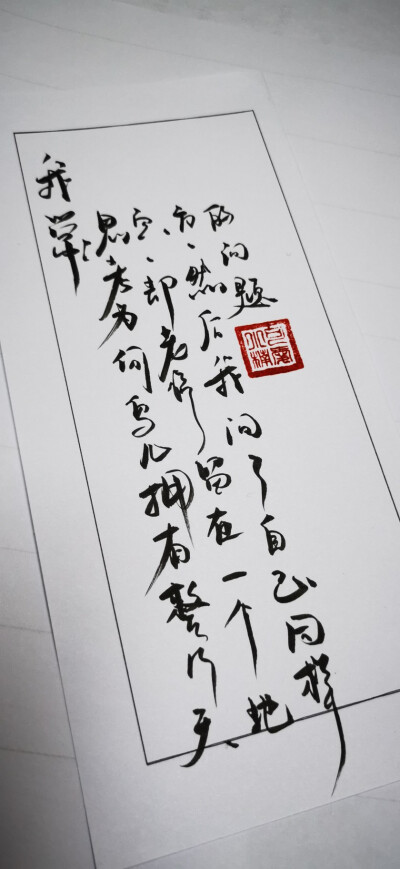 我常常
思考为何鸟儿拥有整片天
空、却老留在一个地
方、然后我问了自己同样
的问题